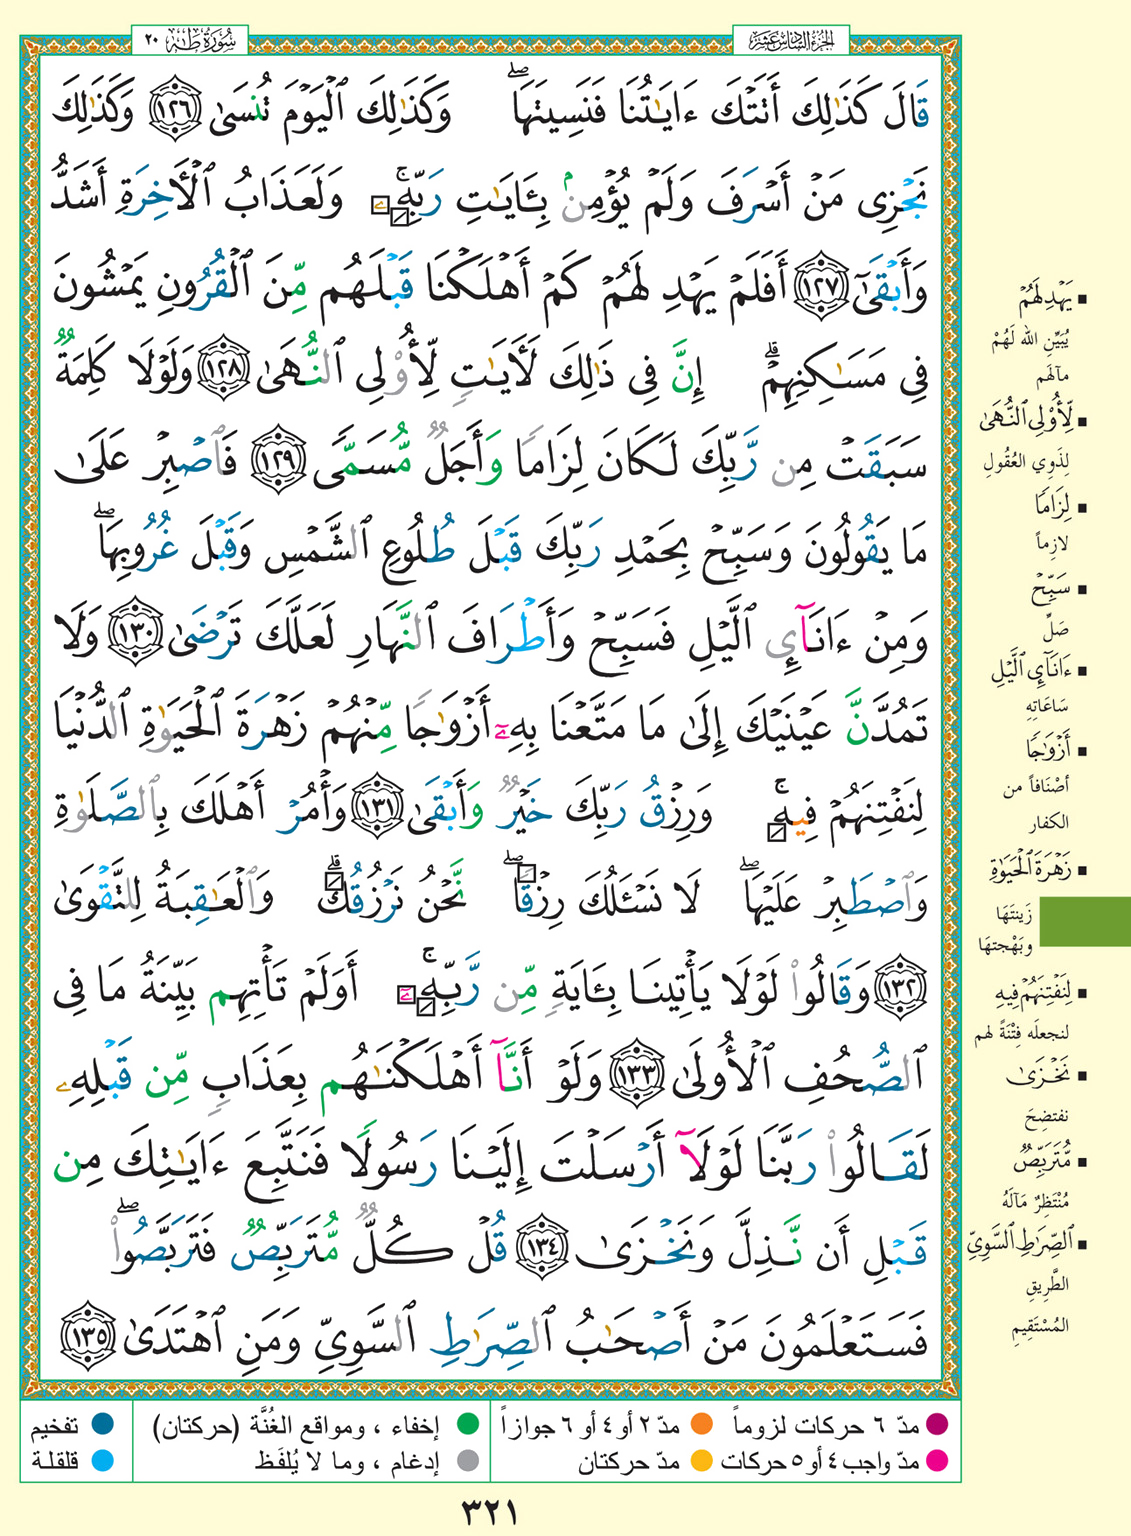 سُورَةُ طه ٢٠
الجزء السادس عشر
قَالَ كَذَٰلِكَ أَتَتۡكَ ءَايَٰتُنَا فَنَسِيتَهَاۖ وَكَذَٰلِكَ ٱلۡيَوۡمَ تُنسَىٰ ١٢٦ وَكَذَٰلِكَ
نَجۡزِي مَنۡ أَسۡرَفَ وَلَمۡ يُؤۡمِنۢ بِـَٔايَٰتِ رَبِّهِۦۚ وَلَعَذَابُ ٱلۡأٓخِرَةِ أَشَدُّ
وَأَبۡقَىٰٓ ١٢٧ أَفَلَمۡ يَهۡدِ لَهُمۡ كَمۡ أَهۡلَكۡنَا قَبۡلَهُم مِّنَ ٱلۡقُرُونِ يَمۡشُونَ
فِي مَسَٰكِنِهِمۡۚ إِنَّ فِي ذَٰلِكَ لَأٓيَٰتٖ لِّأُوْلِي ٱلنُّهَىٰ ١٢٨ وَلَوۡلَا كَلِمَةٞ
سَبَقَتۡ مِن رَّبِّكَ لَكَانَ لِزَامٗا وَأَجَلٞ مُّسَمّٗى ١٢٩ فَٱصۡبِرۡ عَلَىٰ
مَا يَقُولُونَ وَسَبِّحۡ بِحَمۡدِ رَبِّكَ قَبۡلَ طُلُوعِ ٱلشَّمۡسِ وَقَبۡلَ غُرُوبِهَاۖ
وَمِنۡ ءَانَآيِٕ ٱلَّيۡلِ فَسَبِّحۡ وَأَطۡرَافَ ٱلنَّهَارِ لَعَلَّكَ تَرۡضَىٰ ١٣٠ وَلَا
تَمُدَّنَّ عَيۡنَيۡكَ إِلَىٰ مَا مَتَّعۡنَا بِهِۦٓ أَزۡوَٰجٗا مِّنۡهُمۡ زَهۡرَةَ ٱلۡحَيَوٰةِ ٱلدُّنۡيَا
لِنَفۡتِنَهُمۡ فِيهِۚ وَرِزۡقُ رَبِّكَ خَيۡرٞ وَأَبۡقَىٰ ١٣١ وَأۡمُرۡ أَهۡلَكَ بِٱلصَّلَوٰةِ
وَٱصۡطَبِرۡ عَلَيۡهَاۖ لَا نَسۡـَٔلُكَ رِزۡقٗاۖ نَّحۡنُ نَرۡزُقُكَۗ وَٱلۡعَٰقِبَةُ لِلتَّقۡوَىٰ
١٣٢ وَقَالُواْ لَوۡلَا يَأۡتِينَا بِـَٔايَةٖ مِّن رَّبِّهِۦٓۚ أَوَلَمۡ تَأۡتِهِم بَيِّنَةُ مَا فِي
ٱلصُّحُفِ ٱلۡأُولَىٰ ١٣٣ وَلَوۡ أَنَّآ أَهۡلَكۡنَٰهُم بِعَذَابٖ مِّن قَبۡلِهِۦ
لَقَالُواْ رَبَّنَا لَوۡلَآ أَرۡسَلۡتَ إِلَيۡنَا رَسُولٗا فَنَتَّبِعَ ءَايَٰتِكَ مِن
قَبۡلِ أَن نَّذِلَّ وَنَخۡزَىٰ ١٣٤ قُلۡ كُلّٞ مُّتَرَبِّصٞ فَتَرَبَّصُواْۖ
فَسَتَعۡلَمُونَ مَنۡ أَصۡحَٰبُ ٱلصِّرَٰطِ ٱلسَّوِيِّ وَمَنِ ٱهۡتَدَىٰ ١٣٥
يَهۡدِ لَهُمۡ
يُبَيِّنِ الله لَهُمْ
مآلهم
لِّأُوْلِي ٱلنُّهَىٰ
لِذَوِي العُقُولِ
لِزَامٗا
لازِماً
سَبِّحۡ
صَلِّ
ءَانَآيِٕ ٱلَّيۡلِ
سَاعَاتِهِ
أَزۡوَٰجٗا
أصْنَافاً من
الكفار
زَهۡرَةَ ٱلۡحَيَوٰةِ
زَينتَهَا
وبَهْجتهَا
لِنَفۡتِنَهُمۡ فِيهِ
لنجعلَه فِتْنَةً لهم
نَخۡزَىٰ
نفتضِحَ
مُّتَرَبِّصٞ
مُنْتَظِرٌ مَآلَهُ
ٱلصِّرَٰطِ ٱلسَّوِيِّ
الطَّرِيقِ
المُسْتَقِيمِ
مدّ ٦ حركات لزوماً
مدّ ٢ أو ٤ أو ٦ جوازاً
إخفاء ، ومواقع الغُنَّة (حركتان)
تفخيم
مدّ واجب ٤ أو ٥ حركات
مدّ حركتان
إدغام ، وما لا يُلفَظ
قلقلة
٣٢١